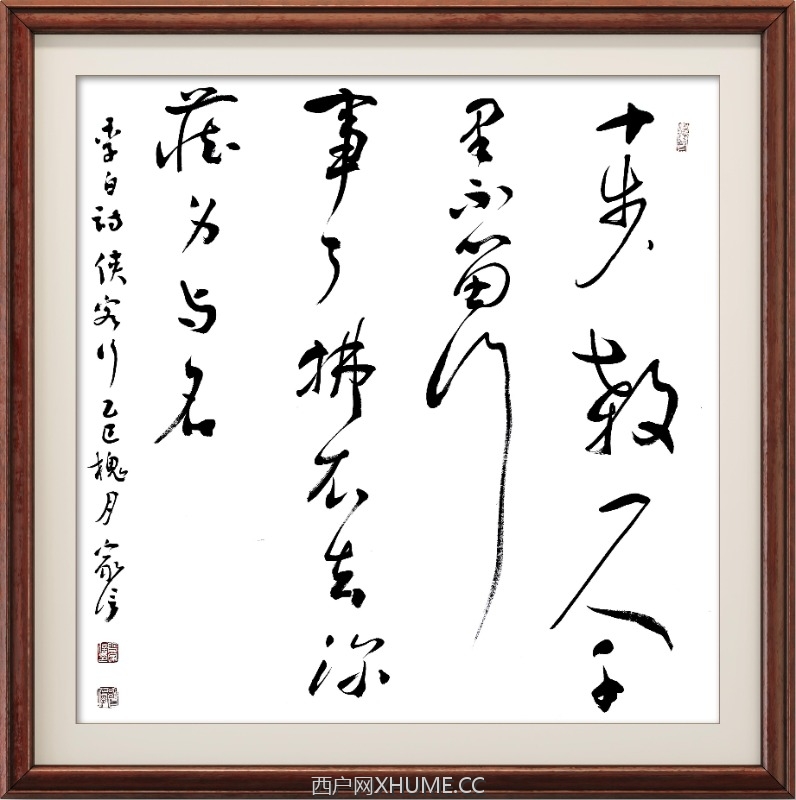 十步殺一人千
里不留行
事了拂衣去深
藏身与名
李白诗侠客行乙巳槐月家信
西户网XHUME.CC